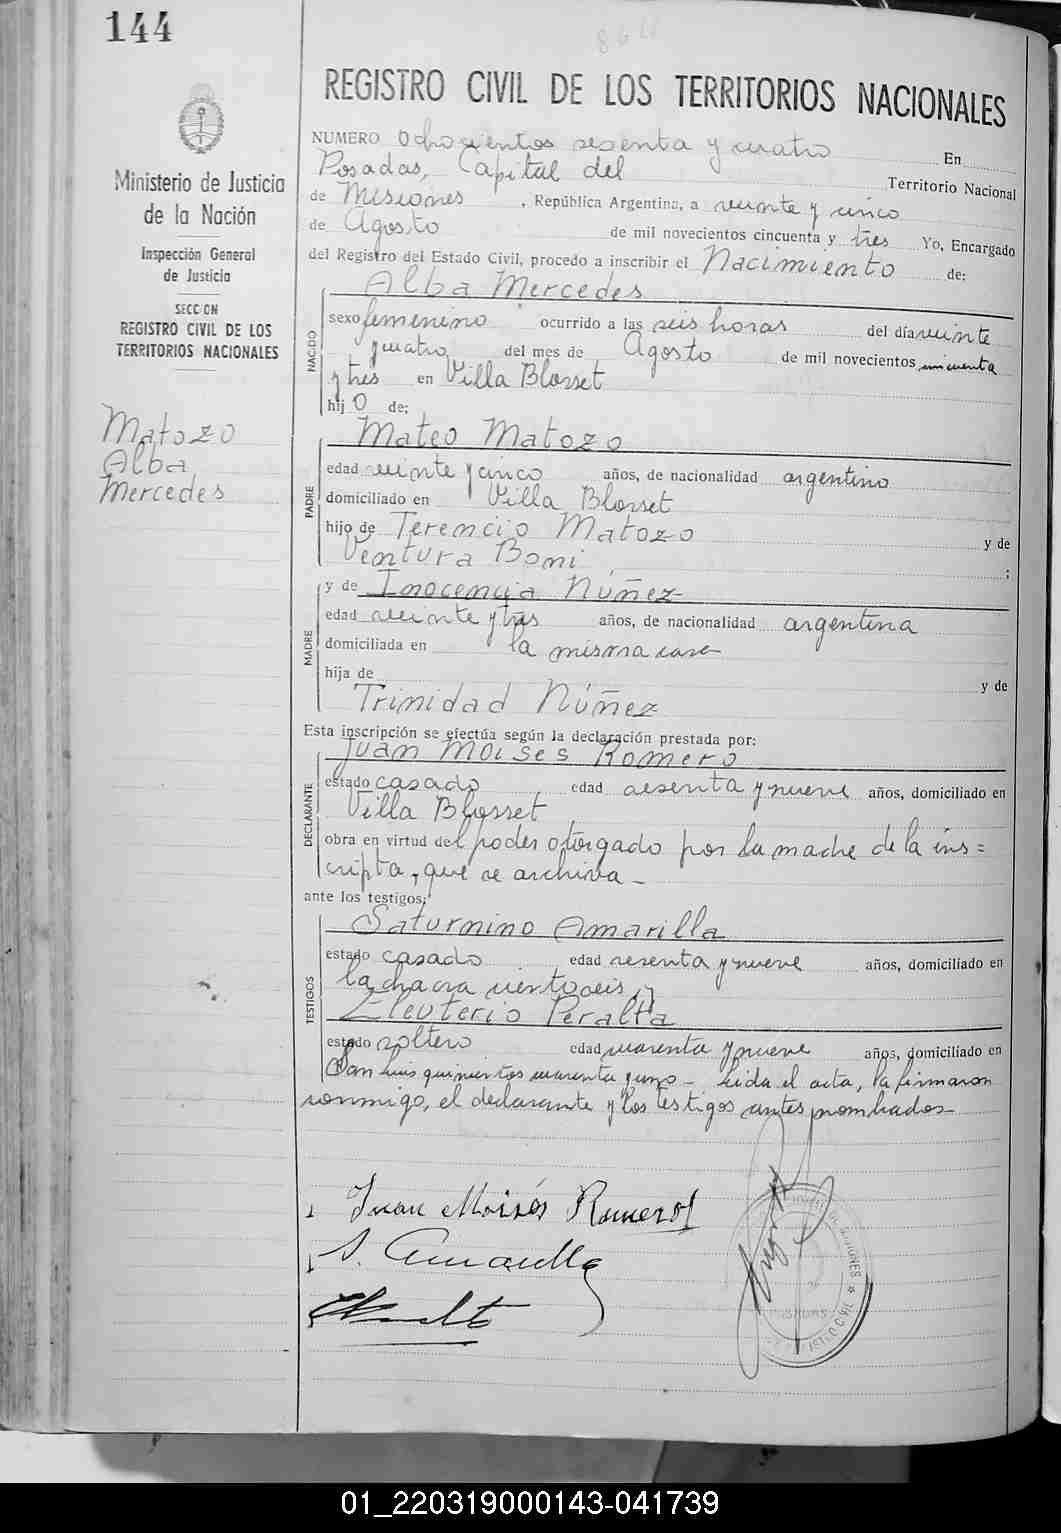 144
864
REGISTRO CIVIL DE LOS TERRITORIOS NACIONALES
Ministerio de Justicia
de la Nación
Inspección General
de Justicia
SECCION
REGISTRO CIVIL DE LOS
TERRITORIOS NACIONALES
Matozo
Alba
Mercedes
NUMERO Ochocientos sesenta y cuatro En
Posadas, Capital del Territorio Nacional
de Misiones, República Argentina, a veinte y cinco
de Agosto de mil novecientos cincuenta y tres Yo, Encargado
del Registro del Estado Civil, procedo a inscribir el Nacimiento de:
NACIDO
Alba Mercedes
sexo femenino ocurrido a las seis horas del día veinte
y cuatro del mes de Agosto de mil novecientos cincuenta
y tres en Villa Blosset
hij O de:
PADRE
Mateo Matozo
edad veinte y cinco años, de nacionalidad argentino
domiciliado en Villa Blosset
hijo de Terencio Matozo y de
Ventura Boni ;
MADRE
y de Inocencia Núñez
edad veinte y tres años, de nacionalidad argentina
domiciliada en la misma casa
hija de y de
Trinidad Núñez
Esta inscripción se efectúa según la declaración prestada por:
DECLARANTE
Juan Moises Romero
estado casado edad sesenta y nueve años, domiciliado en
Villa Blosset
obra en virtud del poder otorgado por la madre de la ins=
cripta, que se archiva -
ante los testigos:
TESTIGOS
Saturnino Amarilla
estado casado edad sesenta y nueve años, domiciliado en
la chacra ciento seis, y
Eleuterio Peralta
estado soltero edad cuarenta y nueve años, domiciliado en
San Luis quinientos cuarenta y uno - Leida el acta, la firmaron
conmigo, el declarante y los testigos antes nombrados -
Juan Moisés Romero
S. Amarilla
MISIONES
REGISTRO CIVIL
01_220319000143-041739